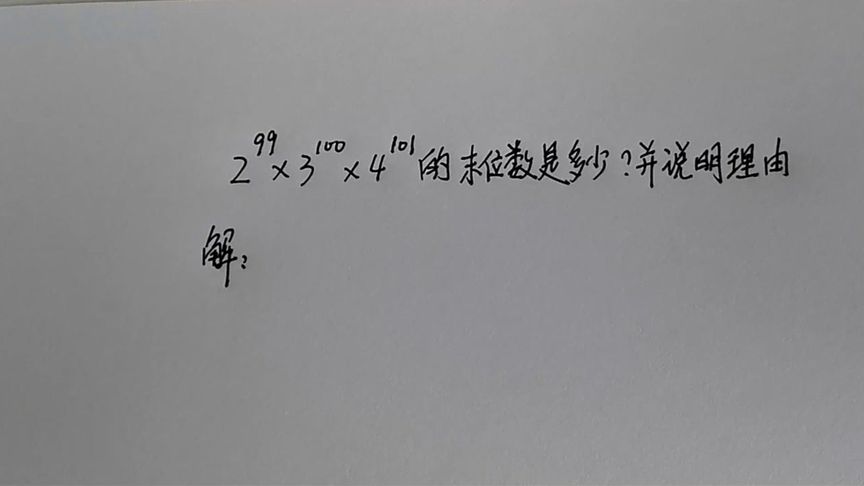 2⁹⁹×3¹⁰⁰×4¹⁰¹的末位数是多少?并说明理由
解: